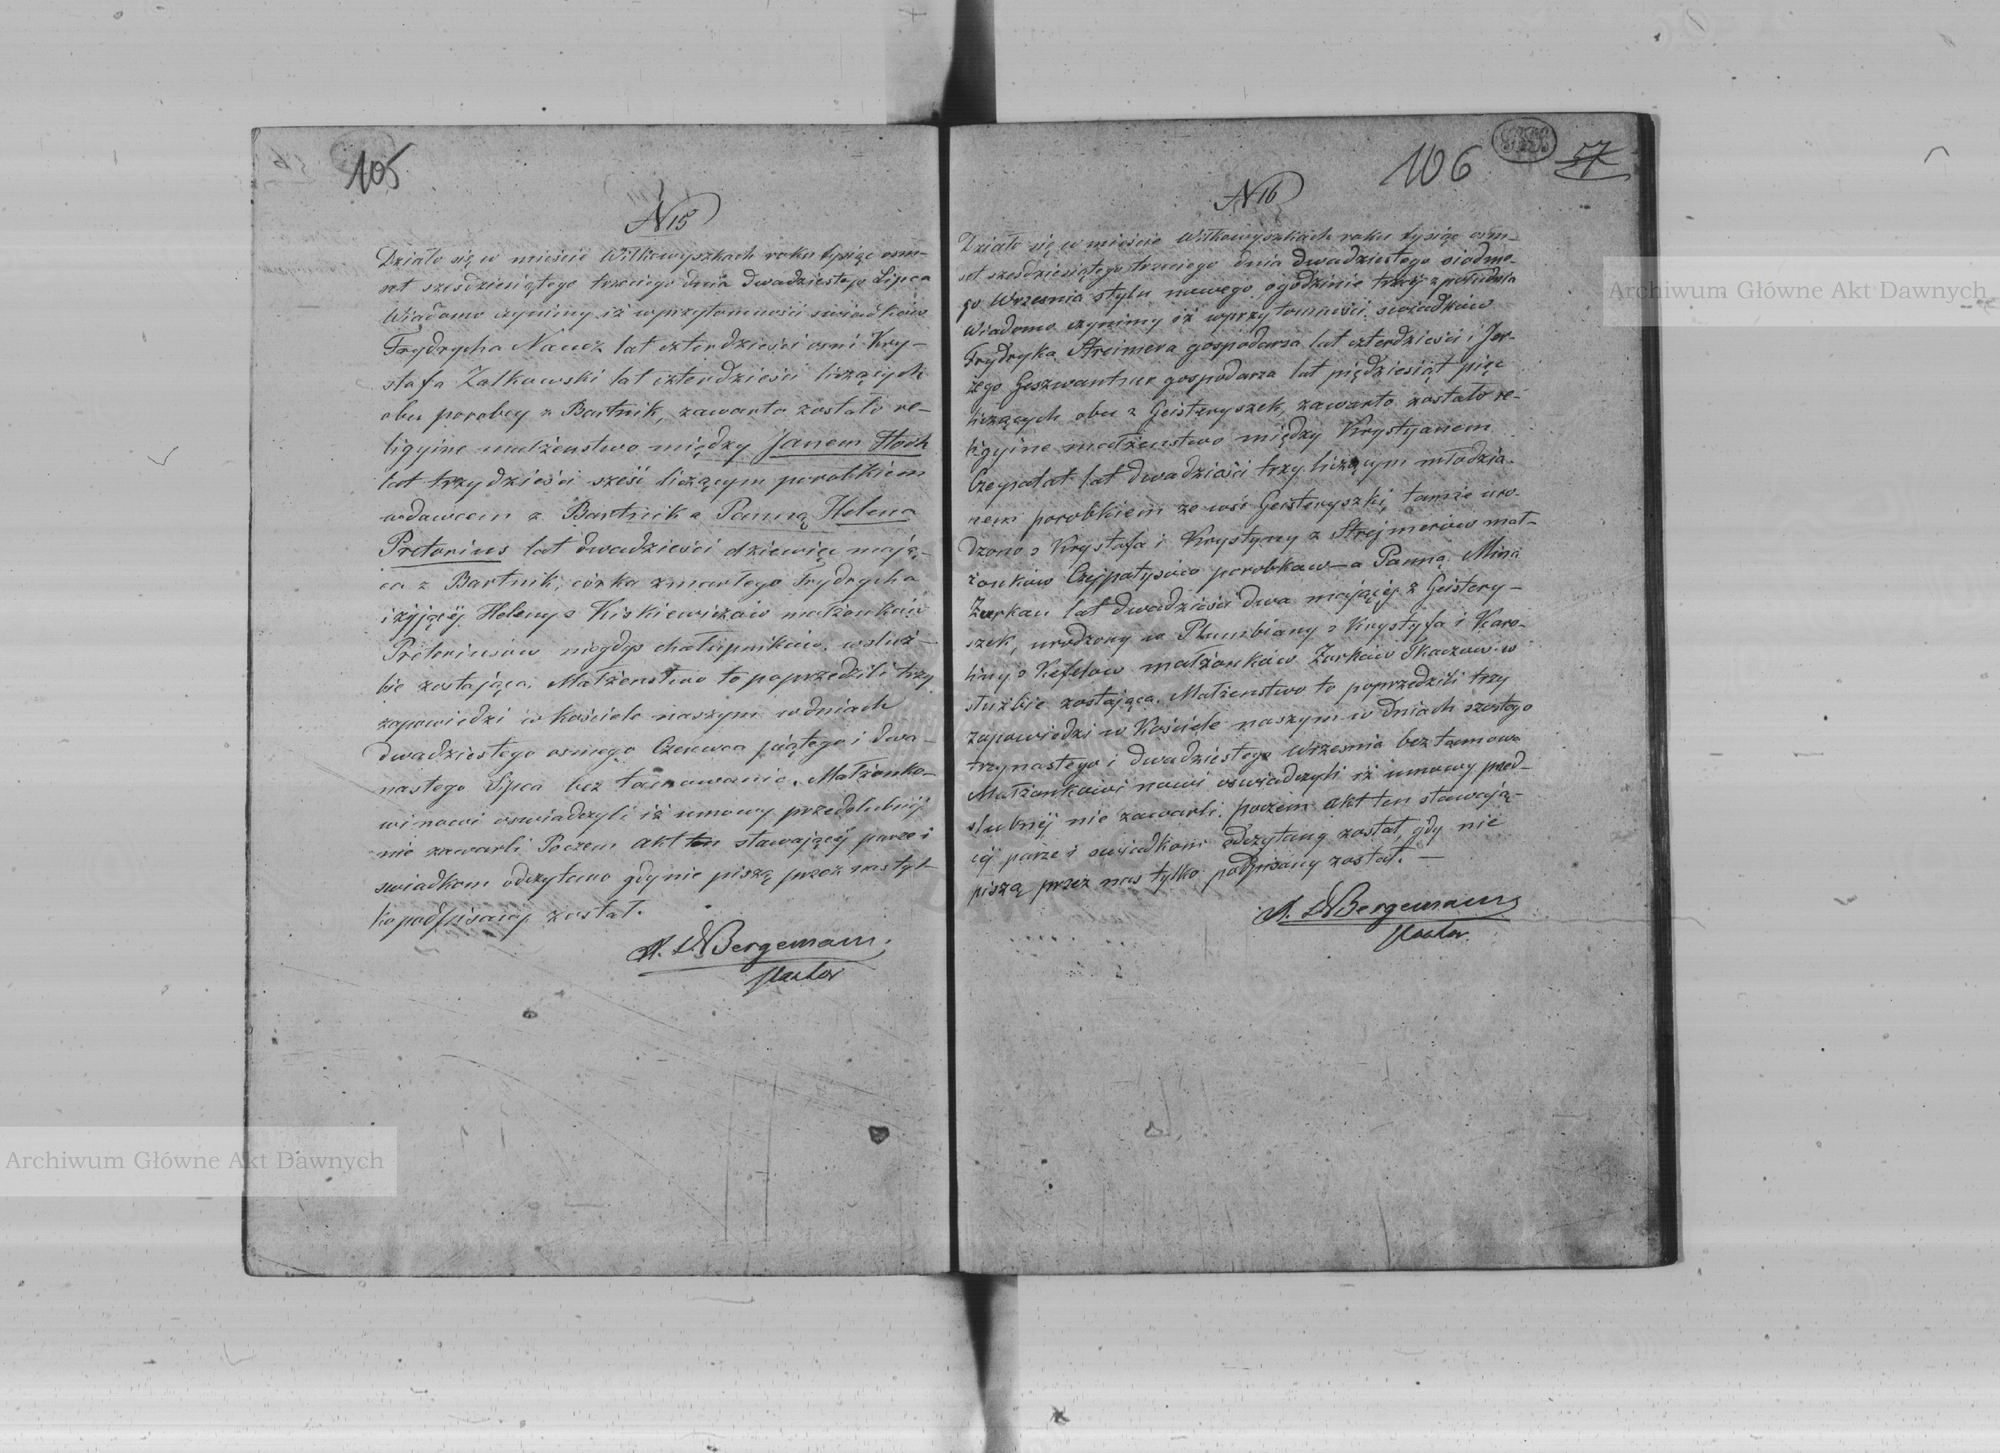 105
N 15
Działo się w mieście Wilkowyszkach roku tysiąc osm-
set sześdziesiątego trzeciego dnia dwudziestego Lipca
Wiadomo czynimy iż wprzytomności swiadków
Frydrycha Naucz lat czterdzieści osm i Kry-
stafa Zalkowski lat czterdzieści liczących
obu parobcy z Bartnik, zawarto zostało re-
ligyine małżenstwo między Janem Hoch
lat trzydzieści sześć liczącym parobkiem
wdawcem z Bartnik a Panną Helena
Pretorius lat dwadzieści dziewięć mają-
ca z Bartnik, córka zmarłego Frydrycha
i żyjącéj Heleny z Kiskiewiczów małżonków
Pretoriusów niegdys chałupników, w służ-
bie zostająca. Małżenstwo to poprzedzili trzy
zapowiedzi w kościele naszym w dniach
dwadziestego osmego Czerwca piątego i dwa-
nastego Lipca bez tamowania. Małżonko-
wi nowi oswiadczyli iż umowy przedslubnéj
nie zawarli Poczem akt ten stawającéj parze i
swiadkom odczytano gdy nie piszą przez nas tyl-
ko podpisany został.
A. W Bergemann.
Pastor
106
57
N 16
Działo się w mieście Wilkowyszkach roku tysiąc osm-
set sześdziesiątego trzeciego dnia dwadziestego siodme-
go Wrzesnia stylu nowego o godzinie trzéj z południa
Wiadomo czynimy iż wprzytomności swiadków
Frydryka Streimera gospodarza lat czterdzieści i Jer-
zego Geszwantner gospodarza lat piędziesiąt pięc
liczących obu z Geisteryszek, zawarto zostało re-
ligyine małżenstwo między Krystyanem
Czepałat lat dwadzieści trzy liczącym młodzia-
nem parobkiem ze wsi Geisteryszki, tamże uro-
dzono z Krystafa i Krystyny z Strejmerów mał-
żonków Czejpatysów parobkow a Panną Mina
Zurkau lat dwadzieści dwa mającéj z Geistery-
szek, urodzony w Plumbiany z Krystyfa i Karo-
liny z Kiefelow małżonków Zurków Tkaczow w
służbie zostająca. Małżenstwo to poprzedzili trzy
zapowiedzi w Kościele naszym w dniach szostego
trzynastego i dwadziestego wrzesnia bez tamowa
Małżonkowi nowi oswiadczyli iż umowy przed-
slubnéj nie zawarli. poczem akt ten stawają-
céj parze i swiadkom odczytany został, gdy nie
piszą przez nas tylko podpisany został. —
A. W Bergemann
Pastor.
Archiwum Główne Akt Dawnych
Archiwum Główne Akt Dawnych